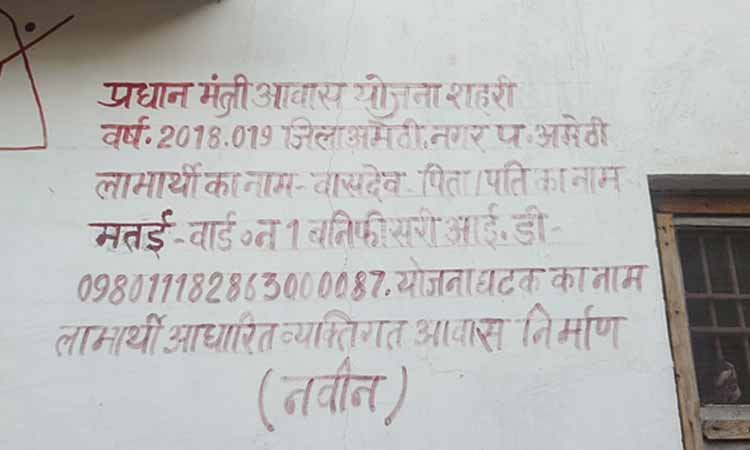 प्रधान मंत्री आवास योजना शहरी
वर्ष. 2018.019 जिला अमेठी. नगर प. अमेठी
लाभार्थी का नाम- वासदेव- पिता/पति का नाम
मतई - वार्ड ०न 1 बनिफीसरी आई. डी-
098011182863000087. योजना घटक का नाम
लाभार्थी आधारित व्यक्तिगत आवास निर्माण
(नवीन)